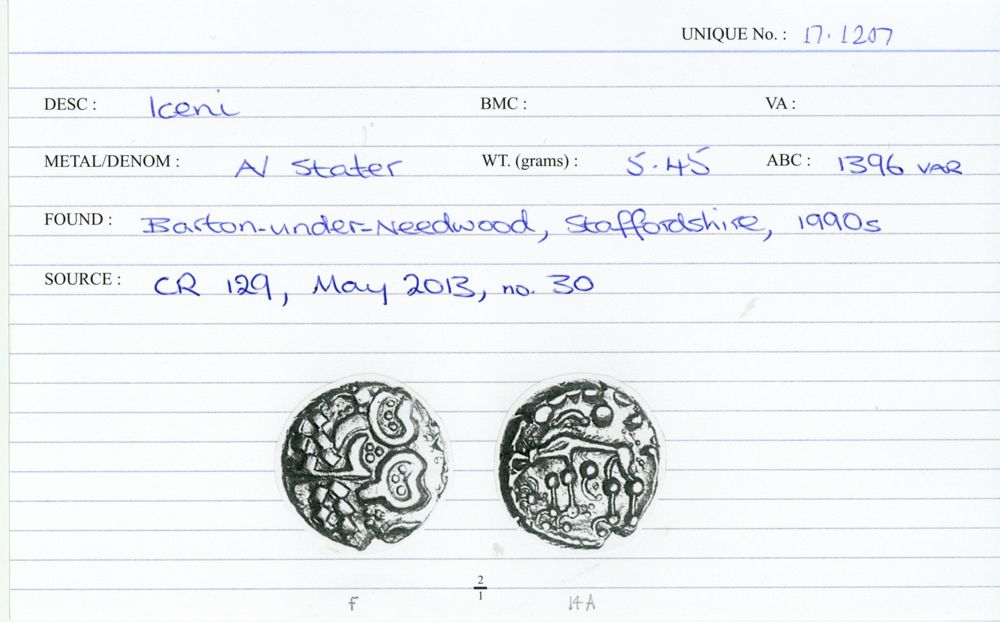 UNIQUE No. : 17.1207
DESC : Iceni BMC : VA :
METAL/DENOM : A/ Stater WT. (grams) : 5.45 ABC : 1396 VAR
FOUND : Barton-under-Needwood, Staffordshire, 1990s
SOURCE : CR 129, May 2013, no. 30
2
1
F 14A